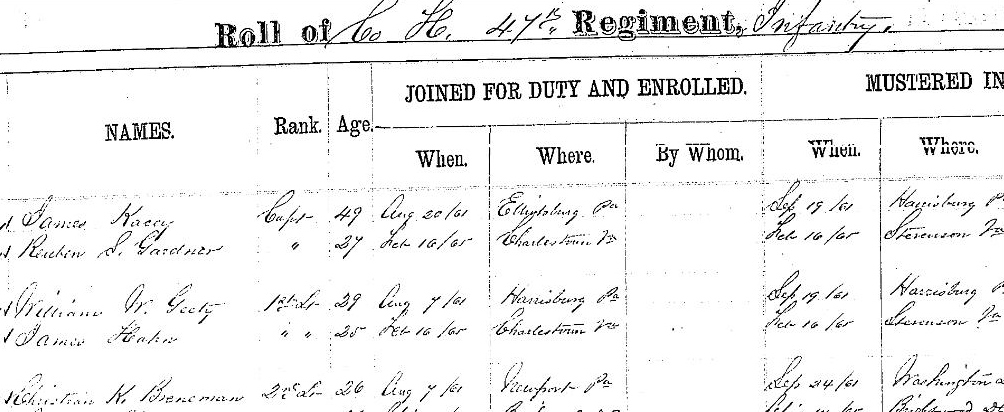 Roll of Co H. 47th Regiment, Infantry.
NAMES. Rank. Age. JOINED FOR DUTY AND ENROLLED. MUSTERED IN
When. Where. By Whom. When. Where.
James Kacey Capt 49 Aug 20/61 Elliottsburg Pa Sep 19/61 Harrisburg P
Reuben S. Gardner " 27 Feb 16/65 Charlestown Va Feb 16/65 Stevenson Va
William W. Geety 1st Lt 29 Aug 7/61 Harrisburg Pa Sep 19/61 Harrisburg P
James Hahn " " 25 Feb 16/65 Charlestown Va Feb 16/65 Stevenson Va
Christian K. Breneman 2nd Lt 26 Aug 7/61 Newport Pa Sep 24/61 Washington